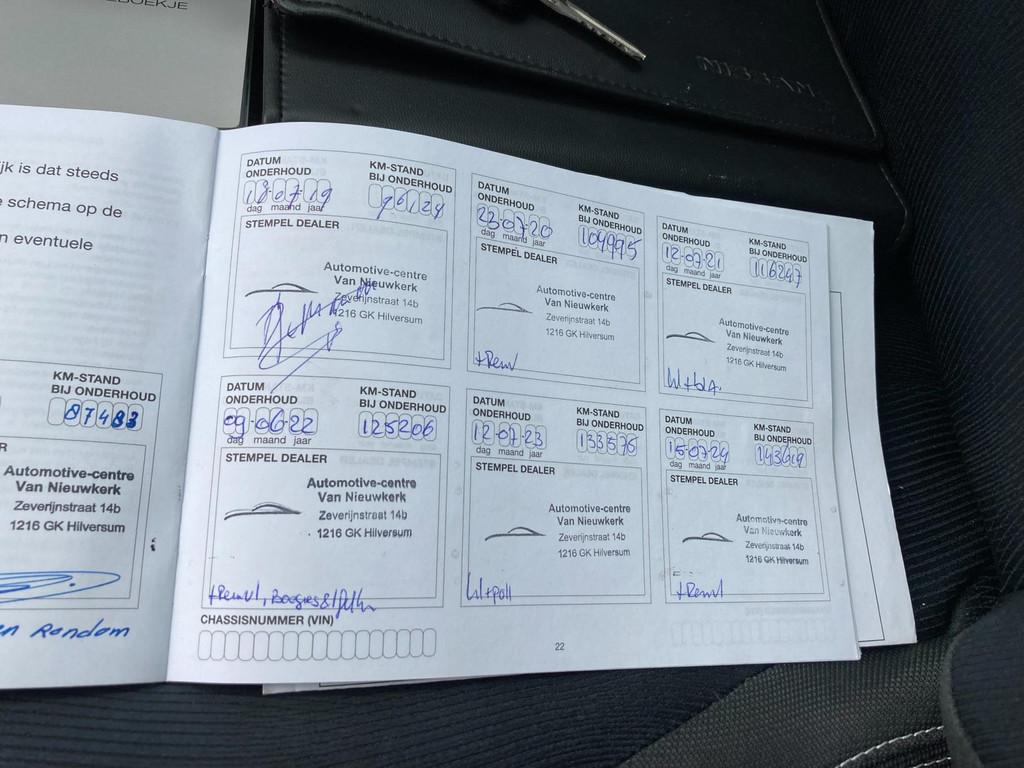 BOEKJE
NISSAN
jk is dat steeds
e schema op de
n eventuele
KM-STAND
BIJ ONDERHOUD
87483
R
Automotive-centre
Van Nieuwkerk
Zeverijnstraat 14b
1216 GK Hilversum
en Rondom
DATUM
ONDERHOUD
KM-STAND
BIJ ONDERHOUD
18-07-19
96124
dag maand jaar
STEMPEL DEALER
Automotive-centre
Van Nieuwkerk
Zeverijnstraat 14b
1216 GK Hilversum
DATUM
ONDERHOUD
KM-STAND
BIJ ONDERHOUD
23-07-20
109995
dag maand jaar
STEMPEL DEALER
Automotive-centre
Van Nieuwkerk
Zeverijnstraat 14b
1216 GK Hilversum
+Remvl
DATUM
ONDERHOUD
KM-STAND
BIJ ONDERHOUD
12-07-21
116247
dag maand jaar
STEMPEL DEALER
Automotive-centre
Van Nieuwkerk
Zeverijnstraat 14b
1216 GK Hilversum
DATUM
ONDERHOUD
KM-STAND
BIJ ONDERHOUD
09-06-22
125206
dag maand jaar
STEMPEL DEALER
Automotive-centre
Van Nieuwkerk
Zeverijnstraat 14b
1216 GK Hilversum
+Remvl,
DATUM
ONDERHOUD
KM-STAND
BIJ ONDERHOUD
12-07-23
133576
dag maand jaar
STEMPEL DEALER
Automotive-centre
Van Nieuwkerk
Zeverijnstraat 14b
1216 GK Hilversum
DATUM
ONDERHOUD
KM-STAND
BIJ ONDERHOUD
15-07-24
143619
dag maand jaar
STEMPEL DEALER
Automotive-centre
Van Nieuwkerk
Zeverijnstraat 14b
1216 GK Hilversum
+Remvl
CHASSISNUMMER (VIN)
22